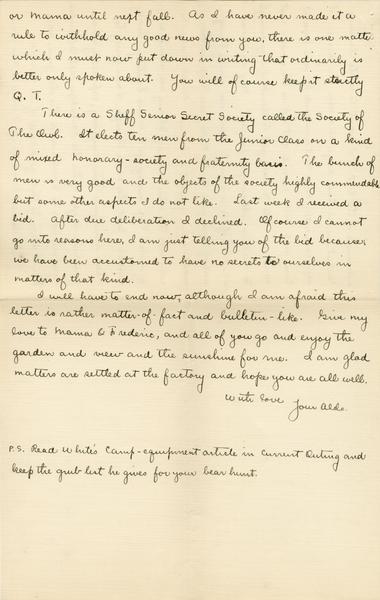 or Mama until next fall. As I have never made it a
rule to withhold any good news from you, there is one matter
which I must now put down in writing that ordinarily is
better only spoken about. You will of course keep it strictly
Q. T.
There is a Sheff Senior Secret Society called the Society of
The Owl. It elects ten men from the Junior Class on a kind
of mixed honorary-society and fraternity basis. The bunch of
men is very good and the objects of the society highly commendable
but some other aspects I do not like. Last week I received a
bid. After due deliberation I declined. Of course I cannot
go into reasons here, I am just telling you of the bid because
we have been accustomed to have no secrets to ourselves in
matters of that kind.
I will have to end now, although I am afraid this
letter is rather matter-of-fact and bulletin-like. Give my
love to Mama & Frederic, and all of you go and enjoy the
garden and view and the sunshine for me. I am glad
matters are settled at the factory and hope you are all well.
With love
Your Aldo.
P.S. Read White's Camp-equipment article in Current Outing and
keep the grub list he gives for your bear hunt.